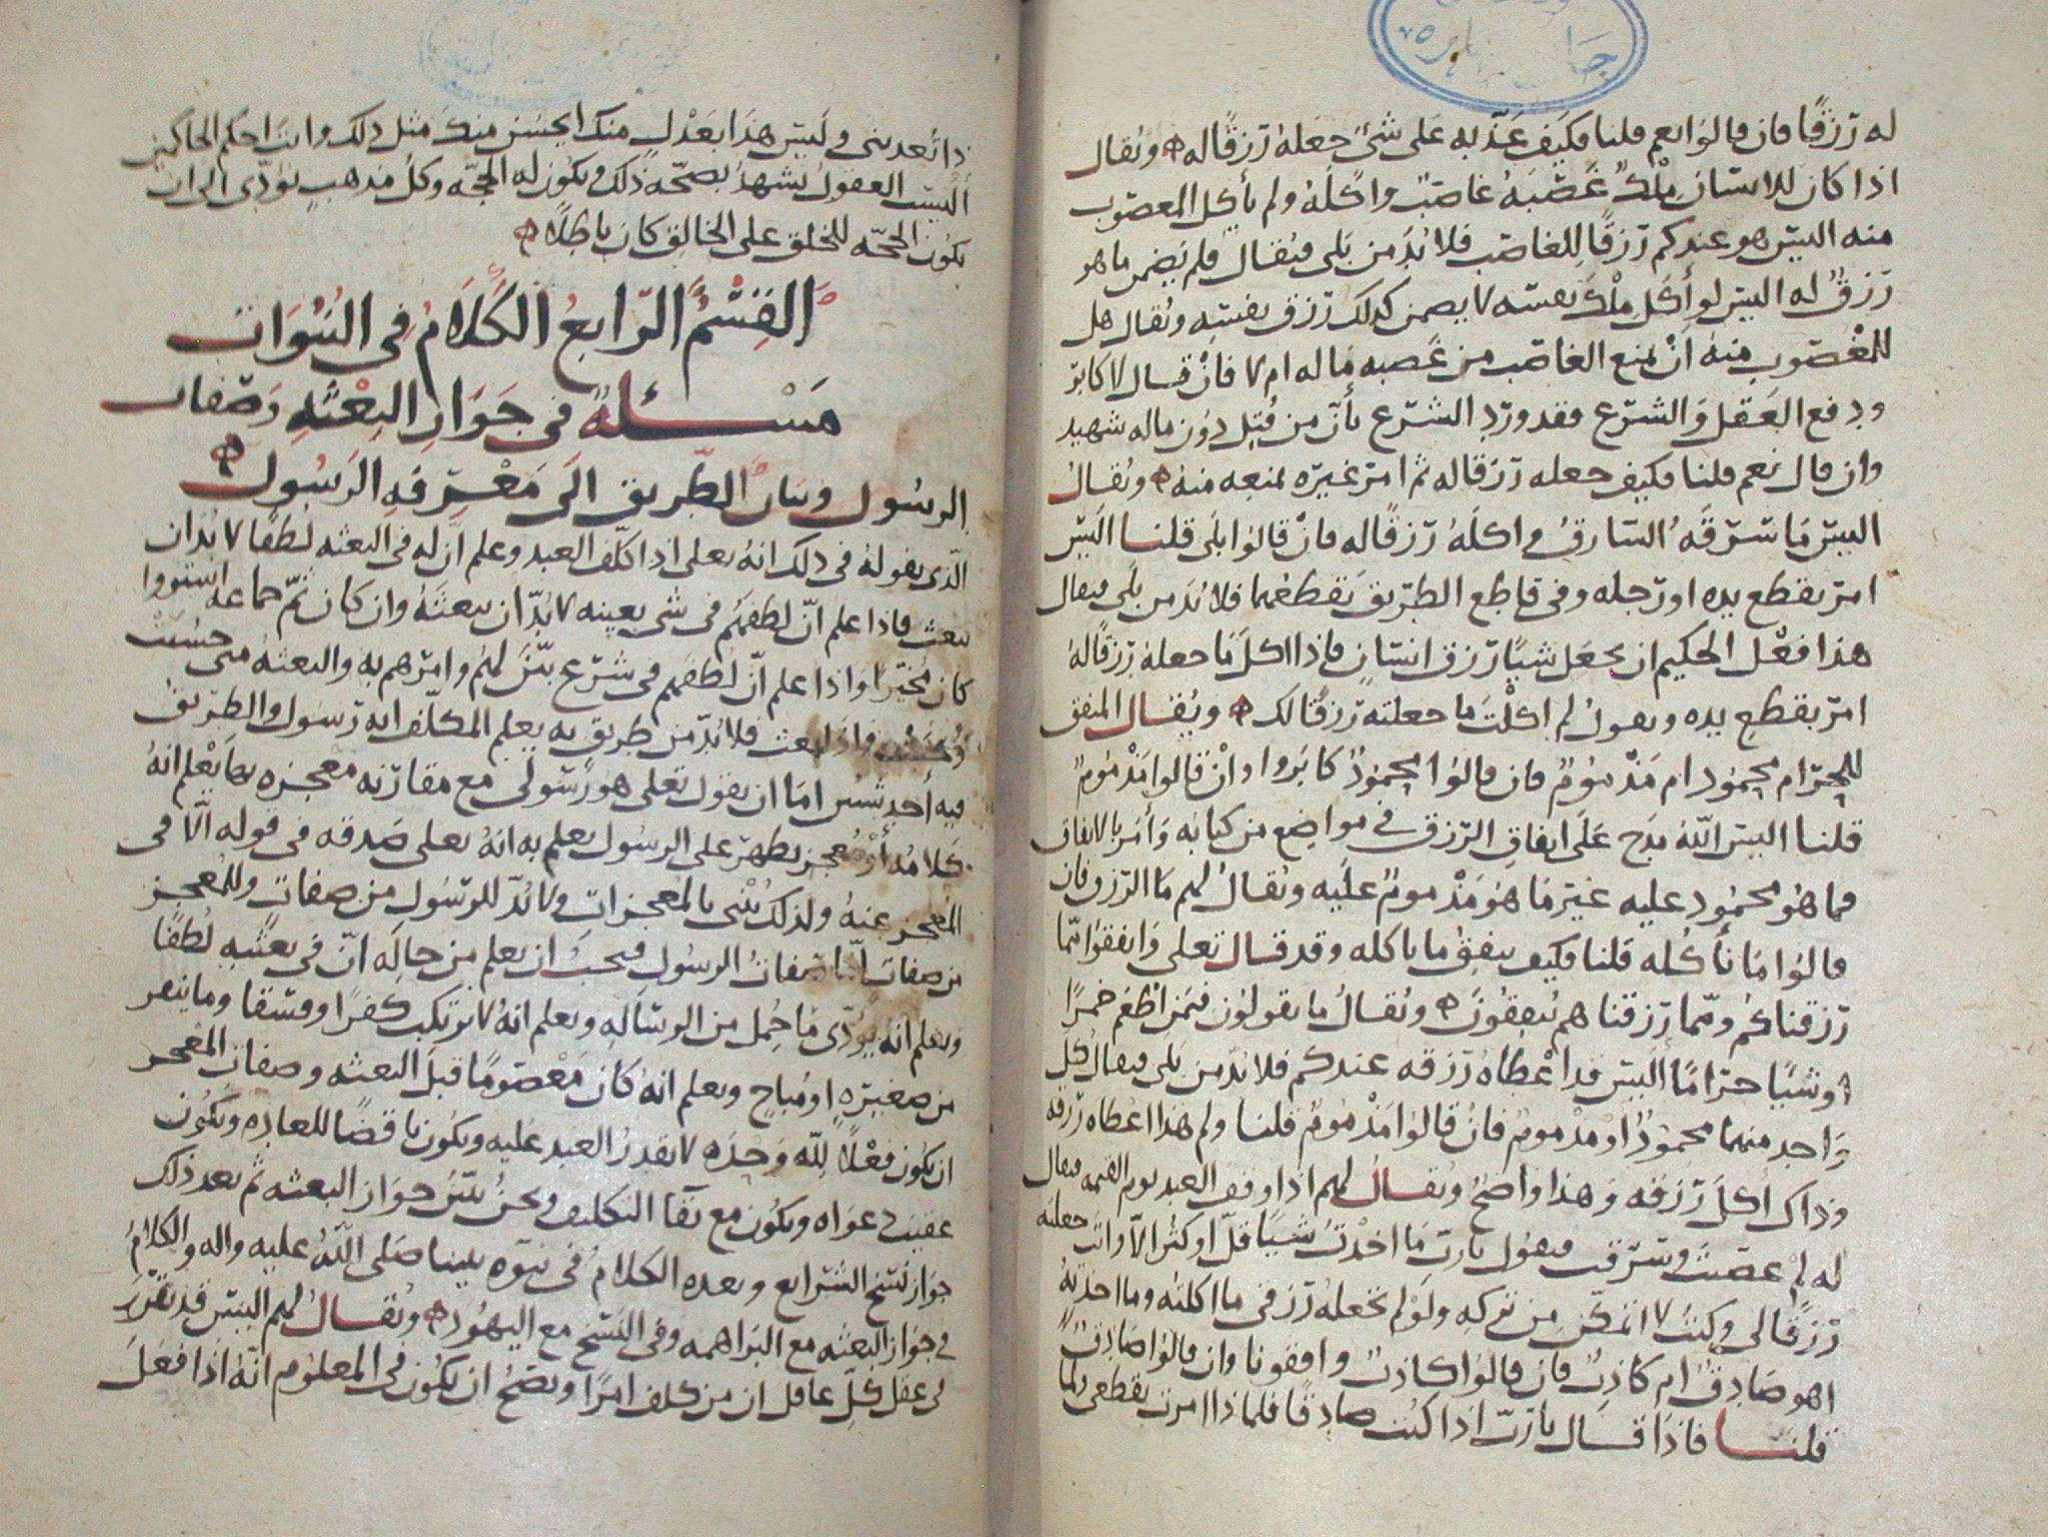 له رزقا فان قالوا نعم قلنا فكيف عذبه على شئ جعله رزقا له ويقال
اذا كان للانسان ملك غصبه غاصب واكله ولم يأكل المغصوب
منه اليس هو عندكم رزقا للغاصب فلا بد من بلى فيقال فلم يضمن ما هو
رزق له اليس لو أكل ملك نفسه لا يضمن كذلك رزق نفسه ويقال هل
للمغصوب منه ان يمنع الغاصب من غصبه ماله ام لا فان قال لا كابر
ودفع العقل والشرع فقد ورد الشرع بأن من قتل دون ماله شهيد
وان قال نعم قلنا فكيف جعله رزقا له ثم امر غيره بمنعه منه ويقال
اليس ما سرقه السارق واكله رزقا له فان قالوا بلى قلنا اليس
امر بقطع يده او رجله وفي قاطع الطريق بقطعهما فلا بد من بلى فيقال
هذا فعل الحكيم ان يجعل شيا رزق انسان فاذا اكل ما جعله رزقا له
امر بقطع يده ويقول لم اكلت ما جعلته رزقا لك ويقال المنفق
للحرام محمود ام مذموم فان قالوا محمود كابروا وان قالوا مذموم
قلنا اليس الله مدح على انفاق الرزق في مواضع من كتابه وأمر بالانفاق
فما هو محمود عليه غير ما هو مذموم عليه ويقال لهم ما الرزق فان
قالوا ما نأكله قلنا فكيف ينفق ما ياكله وقد قال تعلى وانفقوا مما
رزقناكم ومما رزقناهم ينفقون ويقال ما يقولون فمن اطعم خمرا
او شيا حراما اليس قد اعطاه رزقه عندكم فلا بد من بلى فيقال كل
واحد منهما محمود او مذموم فان قالوا مذموم قلنا ولم هذا اعطاه رزقه
وذاك اكل رزقه وهذا واضح ويقال لهم اذا وقف العبد يوم القيمه فيقال
له لم غصبت وسرقت فيقول يا رب ما اخذت شيا قل او كثر الا وانت جعلته
رزقا لي وكنت لا اتمكن من تركه ولو لم تجعله رزقي ما اكلته وما اخذته
اهو صادق ام كاذب فان قالوا كاذب وافقونا وان قالوا صادق
قلنا فاذا قال يا رب اذا كنت صادقا فلماذا امرت بقطعي ولما
ذا تعذبني وليس هذا بعدل منك ايحسن منك مثل ذلك وانت احكم الحاكمين
أليست العقول يشهد بصحة ذلك ويكون له الحجه وكل مذهب يؤدي الى ان
يكون الحجه للخلق على الخالق كان باطلا
القسم الرابع الكلام في النبوات
مسئلة في جواز البعثه وصفات
الرسول وبيان الطريق الى معرفه الرسول
الذي نقوله في ذلك انه تعلى اذا كلف العبد وعلم ان له في البعثه لطفا لا بد ان
يبعث فاذا علم ان لطفهم في شي بعينه لا بد ان يبعثه وان كان ثم جماعه استووا
كان مخيرا واذا علم ان لطفهم في شرع بين لهم وامرهم به والبعثه متى حسنت
وجبت واذا بعث فلا بد من طريق به يعلم المكلف انه رسول والطريق
فيه أحد شيين اما ان يقول تعلى هو رسولي مع مقارنه معجزه بها يعلم انه
كلامه أو معجز يظهر على الرسول يعلم به انه تعلى صدقه في قوله الا في
المعجز عنه ولذلك نثني بالمعجزات ولا بد للرسول من صفات وللمعجز
من صفات أما صفات الرسول فيجب ان يعلم من حاله ان في بعثته لطفا
ويعلم انه يؤدي ما حمل من الرساله ويعلم انه لا يرتكب كفرا وفسقا وما ينفر
من صغيره او مباح ويعلم انه كان معصوما قبل البعثه وصفات المعجز
ان يكون فعلا لله وحده لا يقدر العبد عليه ويكون ناقضا للعاده ويكون
عقيب دعواه ويكون مع بقا التكليف ونحن نبين جواز البعثه ثم بعد ذلك
جواز نسخ الشرايع وبعده الكلام في نبوه نبينا صلى الله عليه واله والكلام
في جواز البعثه مع البراهمه وفي النسخ مع اليهود ويقال لهم اليس قد تقرر
في عقل كل عاقل ان من كلف امرا ويصح ان يكون في المعلوم أنه اذا فعل